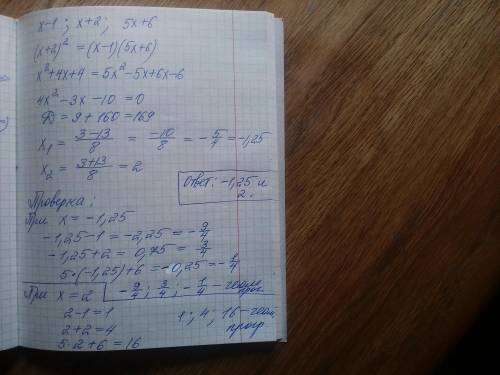 x-1 ; x+2 ; 5x+6
(x+2)² = (x-1)(5x+6)
x²+4x+4 = 5x²-5x+6x-6
4x²-3x-10=0
D = 9+160=169
x₁ = (3-13)/8 = -10/8 = -5/4 = -1,25
x₂ = (3+13)/8 = 2
Ответ: -1,25 и 2.
Проверка:
При x = -1,25
-1,25-1 = -2,25 = -9/4
-1,25+2 = 0,75 = 3/4
5·(-1,25)+6 = -0,25 = -1/4
-9/4 ; 3/4 ; -1/4 - геом. прог.
При x = 2
2-1=1
2+2=4
5·2+6=16
1; 4; 16 - геом. прогр